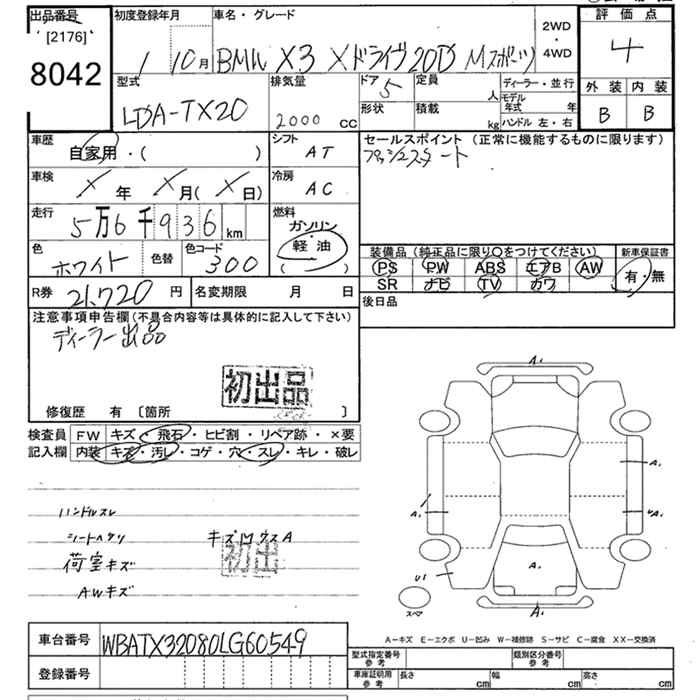 出品番号
[2176]
8042
初度登録年月
1 10月
車名・グレード
BMW X3 Xドライブ20D Mスポーツ
2WD
・
4WD
評価点
4
外装 内装
B B
型式
LDA-TX20
排気量
2000 cc
ドア 5
形状
定員 人
積載 kg
ディーラー・並行
モデル年式 年
ハンドル 左・右
車歴
自家用・( )
シフト
AT
車検
X年 X月(X日)
冷房
AC
走行
5万6千936km
燃料
ガソリン
軽油
( )
色
ホワイト
色替
色コード
300
セールスポイント(正常に機能するものに限ります)
プッシュスタート
装備品(純正品に限り〇をつけてください)
PS PW ABS エアB AW
SR ナビ TV カワ
新車保証書
有・無
R券 21,720円
名変期限 月 日
後日品
注意事項申告欄(不具合内容等は具体的に記入して下さい)
ディーラー出品
初出品
修復歴 有 〔箇所 〕
検査員 FW キズ・飛石・ヒビ割・リペア跡・×要
記入欄 内装 キズ・汚レ・コゲ・穴・スレ・キレ・破レ
ハンドルスレ
シートヘタリ
キズワウスA
初出
荷室キズ
AWキズ
A1
A1
A1
A1
U1
A1
A1
スペア
A-キズ E-エクボ U-凹み W-補修跡 S-サビ C-腐食 XX-交換済
車台番号 WBATX32080LG60549
登録番号
型式指定番号
参考
類別区分番号
参考
車庫証明用
参考
長さ cm
幅 cm
高さ cm